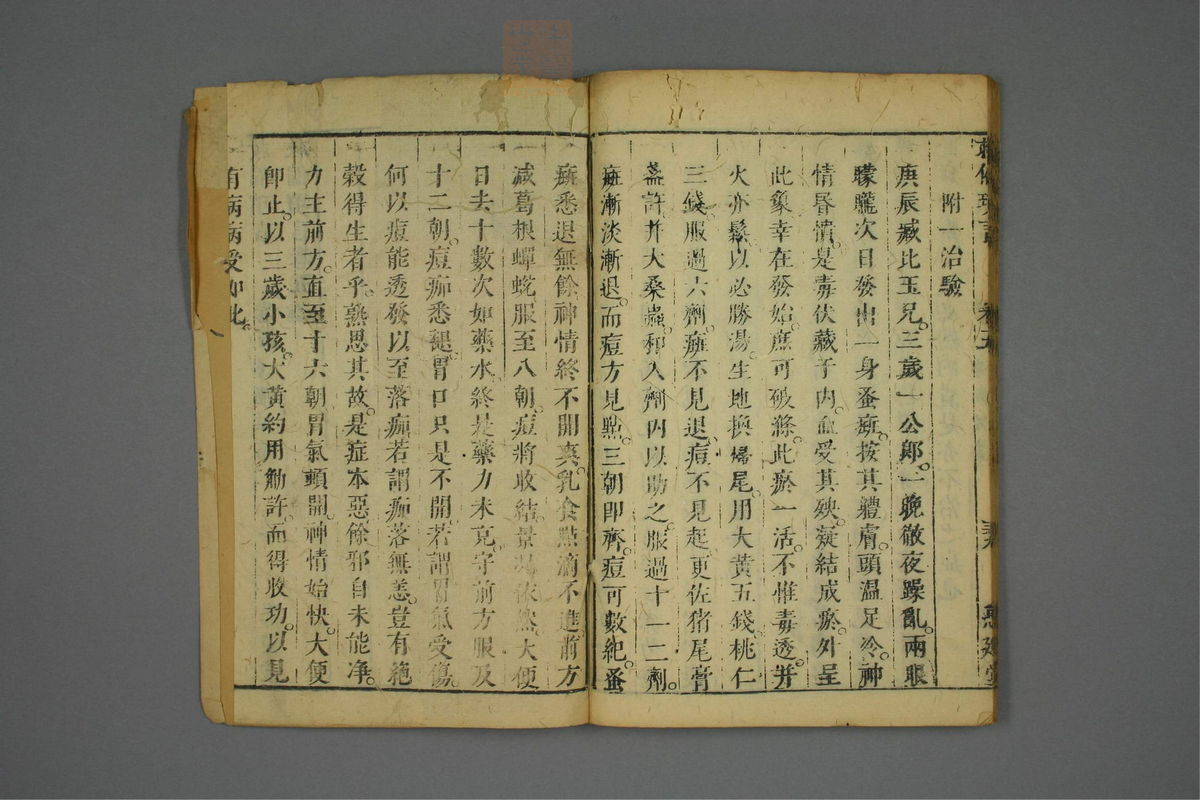 附一治驗
庚辰臧比玉兄。三歲一公郎。一晚徹夜躁亂。兩眼
矇矓次日發出一身蚤癍。按其軆膚。頭温足冷。神
情昏憒。是毒伏藏于内。血受其殃。凝結成瘀。外呈
此象幸在發始。庶可破滌。此瘀一活。不惟毒透。并
火亦鬆。以必勝湯。生地換歸尾。用大黃五錢。桃仁
三錢。服過六劑。癍不見退。痘不見起。更佐猪尾膏
盞許。并大桑蟲。和入劑内以助之。服過十一二劑。
癍漸淡漸退。而痘方見點。三朝即齊。痘可數紀。蚤
癍悉退無餘。神情終不開爽。乳食點滴不進。前方
减葛根蟬蛻。服至八朝。痘將收結。景塲依然。大便
日去十數次如藥水。終是藥力未克。守前方服及
十二朝。痘痂悉褪。胃口只是不開。若謂胃氣受傷。
何以痘能透發以至落痂。若謂痂落無恙。豈有絶
穀得生者乎。熟思其故。是症本惡。餘邪自未能净。
力主前方。直至十六朝。胃氣頓開。神情始快。大便
即止。以三歲小孩。大黃約用觔許。而得收功。以見
有病病受如此。
卷五